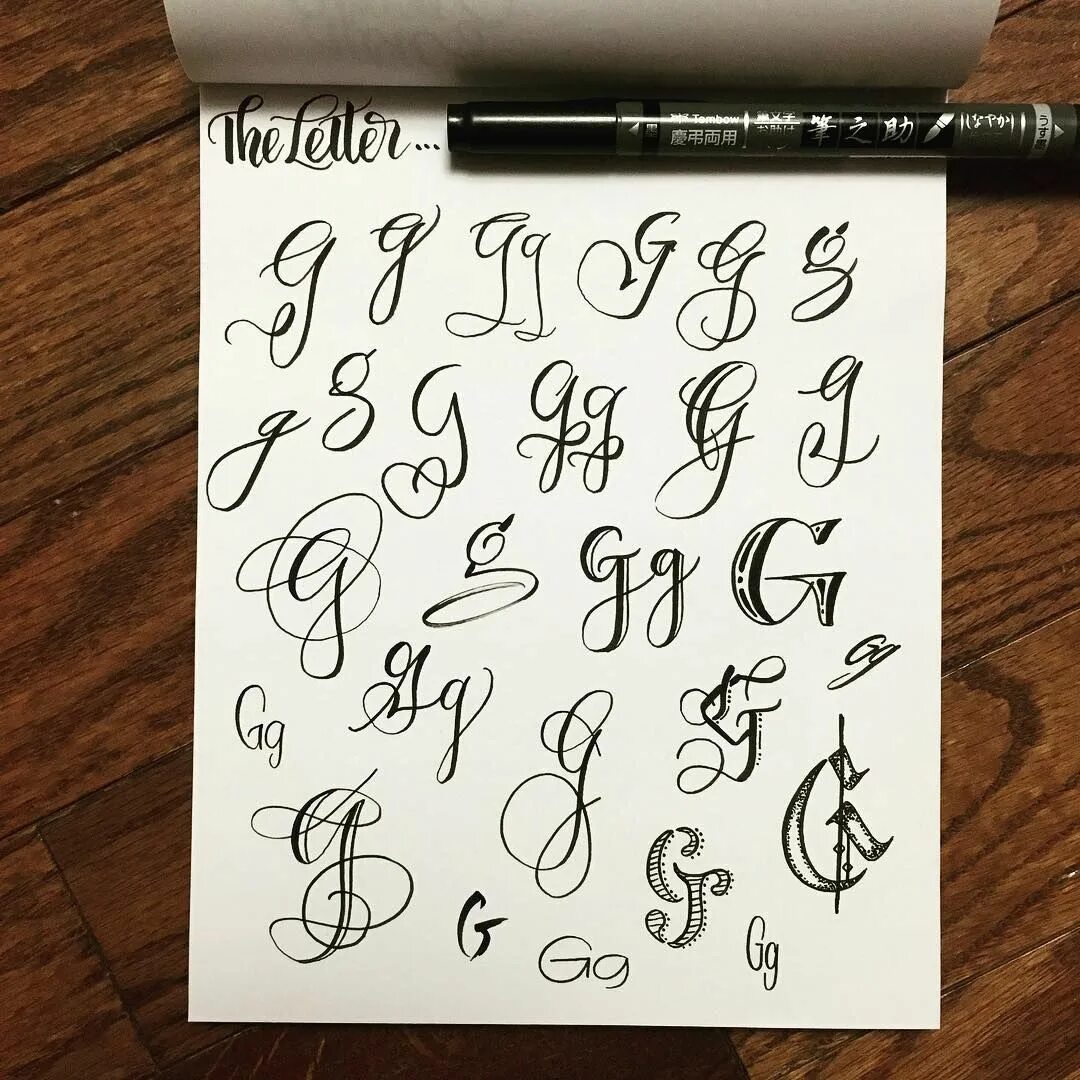 The Letter...
Tombow 慶弔両用 筆文字 お助け 筆之助 しなやか うす墨
G g Gg G G g
g g G Gg G g
G g Gg G
Gg Gg G G Gg
G G G
G Gg Gg